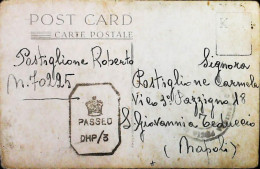 POST CARD
CARTE POSTALE
Pastiglione Roberto
N. 70225
PASSED
DHP/3
Signora
Pastiglione Carmela
Vico 3° 18
S. Giovanni a Teduccio
(Napoli)